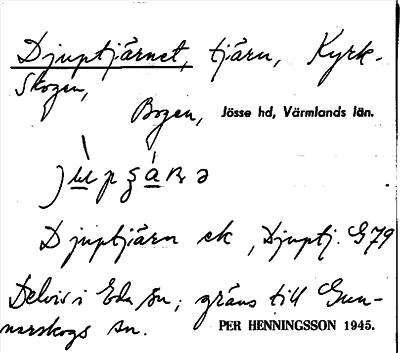 Djuptjärnet, tjärn, Kyrk-
skogen,
Bogen, Jösse hd, Värmlands län.
Djuptjärn ek, Djuptj. G79
Delvis i Eda sn; gräns till Gun-
narskogs sn. PER HENNINGSSON 1945.